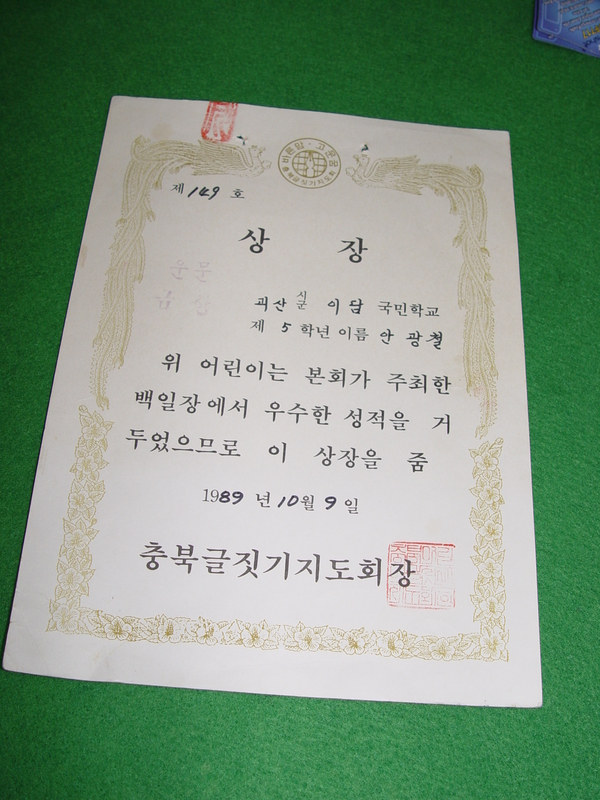 바른말·고운꿈
충북글짓기지도회
제 149 호
상 장
괴산 시군 이담 국민학교
제 5 학년 이름 안광철
위 어린이는 본회가 주최한
백일장에서 우수한 성적을 거
두었으므로 이 상장을 줌
1989 년 10월 9 일
충북글짓기지도회장